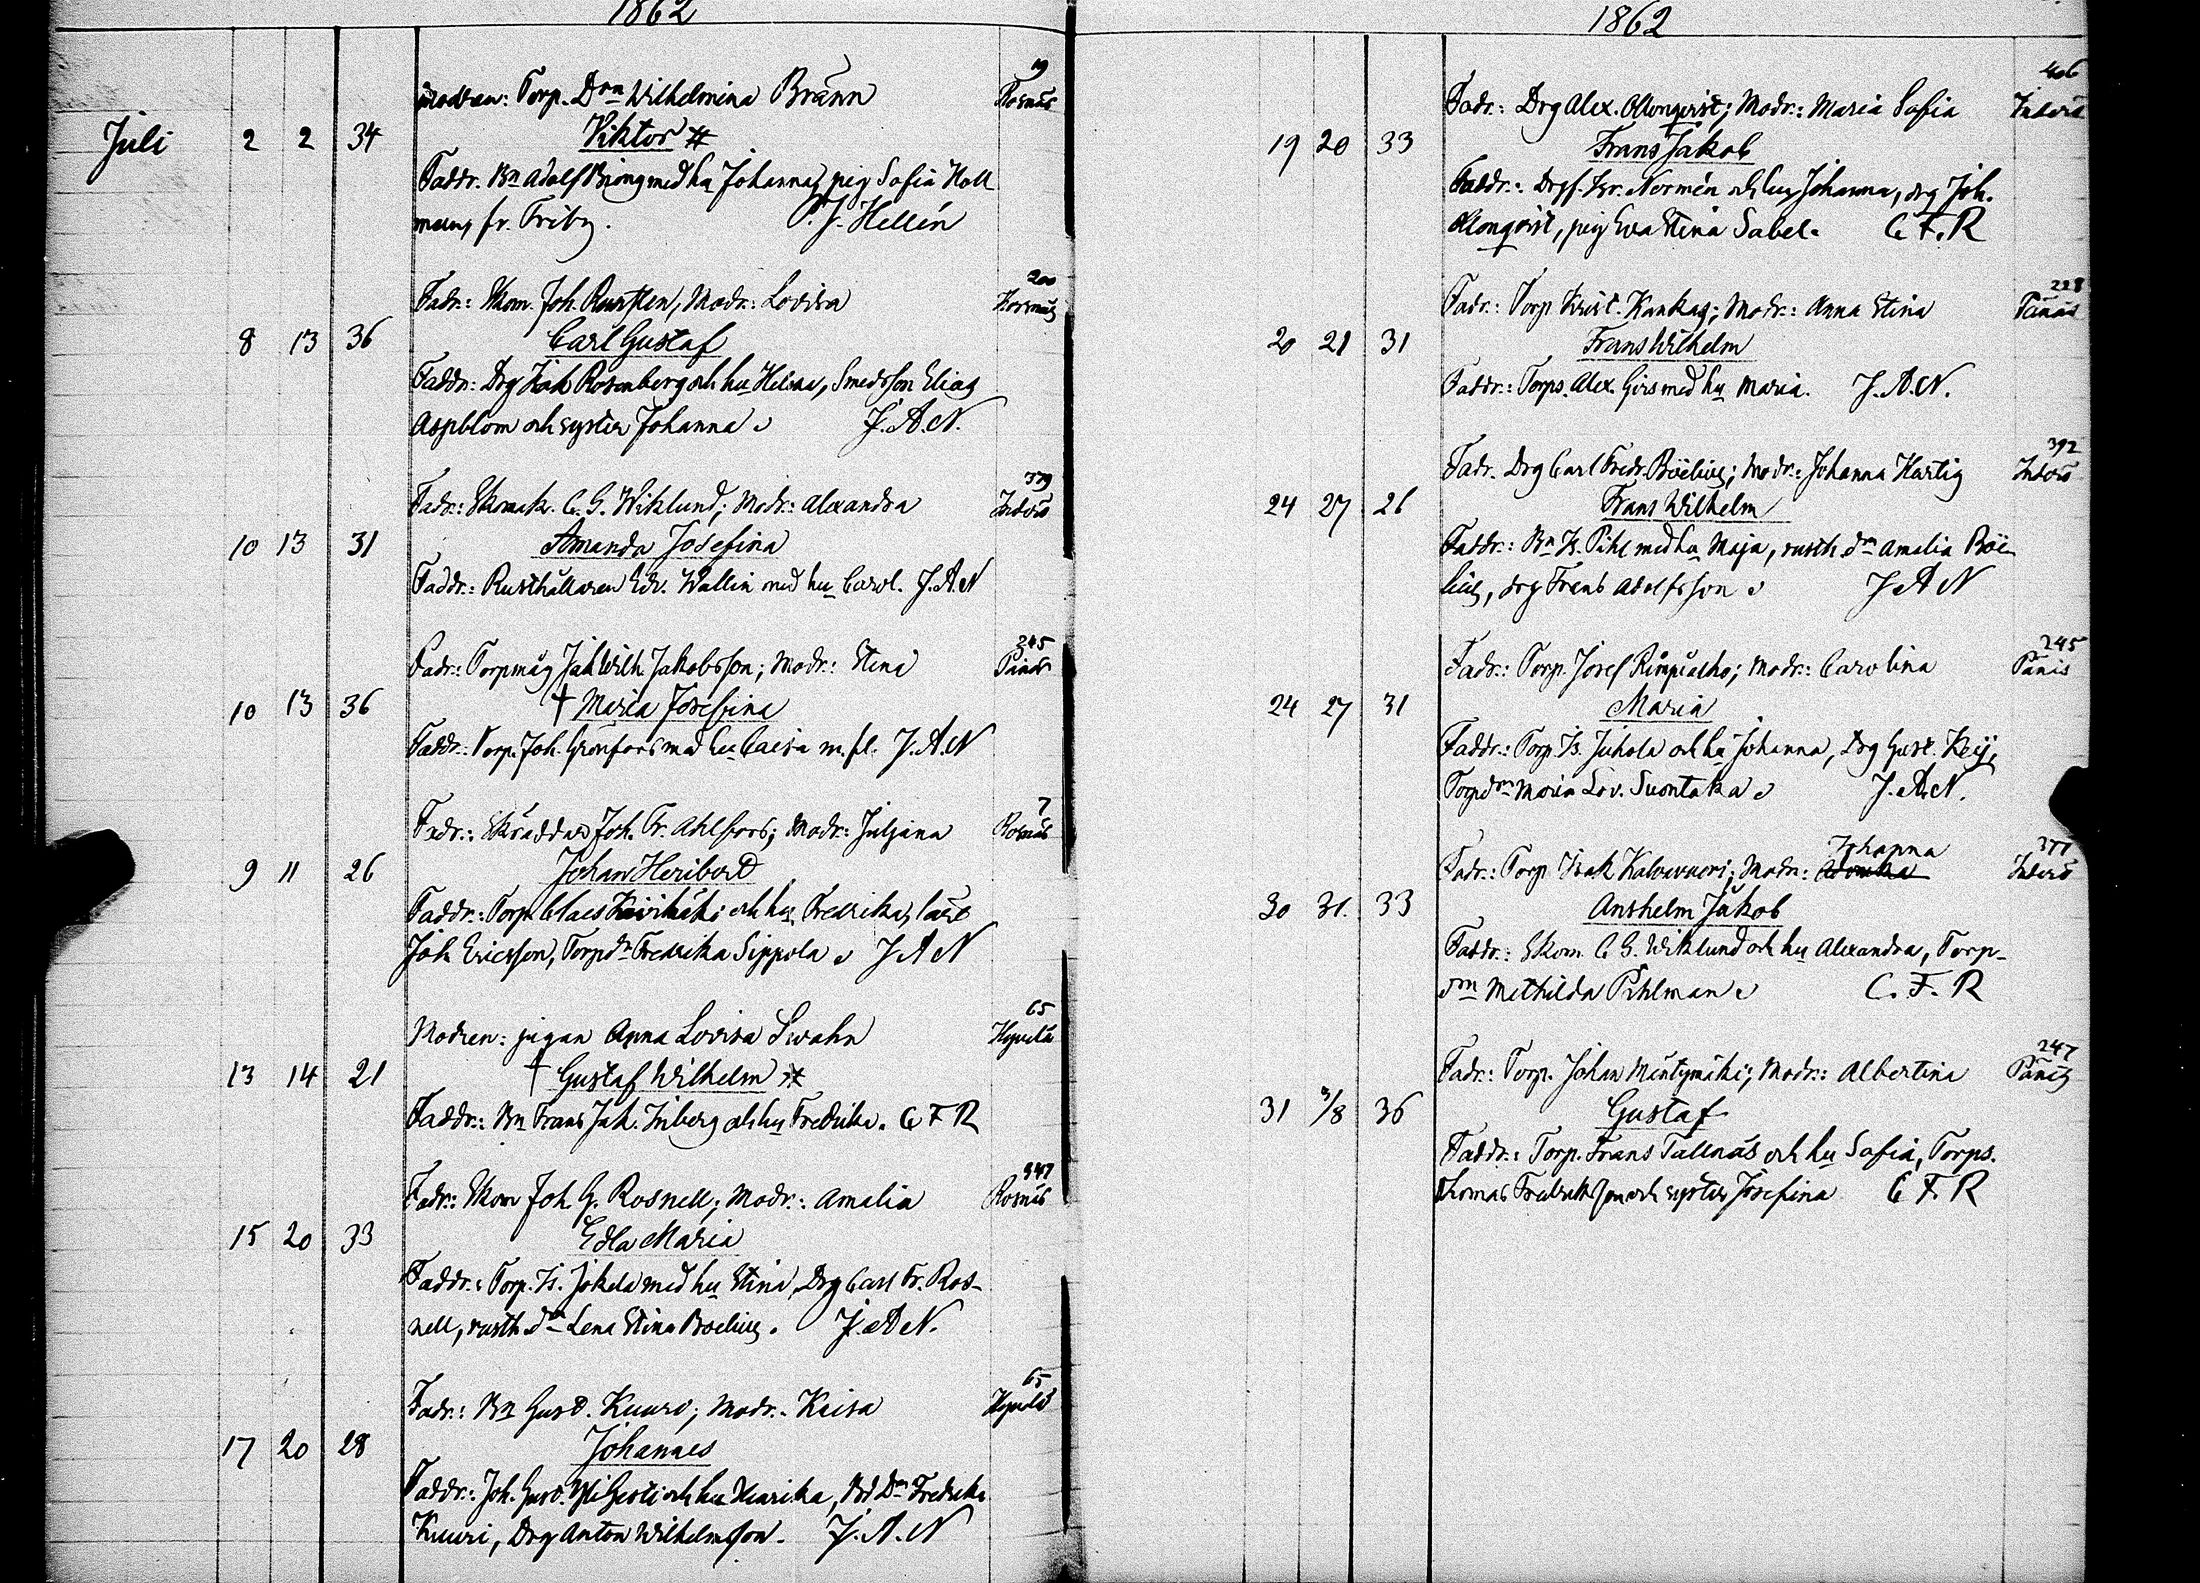 1862
19
Modren: Torp. Drn Wilhelmina Bränn Rosnäs
Juli 2 2 34 Viktor #
Faddr. Bn Adolf med hu Johanna, pig Sofia Holl
man, fr. Friby. P. J. Hellén
200
Fadr.: Skom. Joh. Lovisa
8 13 36 Carl Gustaf
Faddr.: Drg Isak Rosenberg och hu Helena, Smedsson Elias
Aspblom och syster Johanna J. A. N.
379
Fadr.: Skomak. C. G. Wiklund; Modr.: Alexandra
10 13 31 Amanda Josefina
Faddr.: Rusthållaren Edv. Wallin med hu Carol. J. A. N
245
Fadr.: Torpmåg Jak Wilh. Jakobsson; Modr.: Stina
10 13 36 † Maria Josefina
Faddr.: Torp. Joh. Grönfors med hu Caisa m. fl. J. A. N
7
Fadr.: Skräddar Joh. Fr. Ahlfors; Modr.: Juljana Rosnäs
9 11 26 Johan Heribert
Faddr.: Torp. Claes och hu Fredrika,
Joh. Ericsson, Torpdr Fredrika Sippola J A N
65
Modren: pigan Anna Lovisa Swahn
13 14 21 † Gustaf Wilhelm #
Faddr.: Bn Frans Jak. Inberg och hu Fredrika. C F R
347
Fadr.: Skom Joh. G. Rosnell; Modr.: Amalia Rosnäs
15 20 33 Edla Maria
Faddr.: Torp. Is. Jokela med hu Stina, Drg Carl Fr. Ros-
nell, rusth. dr Lena Stina Boelius. J. A N.
65
Fadr.: Bn Gust. Kuuri; Modr.: Kaisa
17 20 28 Johannes
Faddr.: Joh. Gust. och hu Ulrika, Dr Fredrika
Kuuri, Drg Anton Wilhelmsson. J. A. N
1862
406
Fadr.: Drg Alex. Blomqvist; Modr.: Maria Sofia
19 20 33 Frans Jakob
Faddr.: Fr. Normén och hu Johanna, drg Joh.
Blomqvist, pig Eva Stina Sabel. C. F. R
228
Fadr.: Torp Krist. Kankas; Modr.: Anna Stina
20 21 31 Frans Wilhelm
Faddr.: Torps. Alex. Girs med hu Maria. J. A. N.
392
Fadr. Drg Carl Fredr. Böelius; Modr.: Johanna Hartig
24 27 26 Frans Wilhelm
Faddr.: Bn Is. Pihl med hu Maja, rusth. dr Amalia Böe-
lius, drg Frans Adolfsson J A N
245
Fadr.: Torp. Josef Rimpialho; Modr.: Carolina
24 27 31 Maria
Faddr.: Torp. Is. Juhola och hu Johanna, Drg Gust. Keij,
Torpdr Maria Lov. Suontaka J. A. N.
Johanna 377
Fadr.: Torp Isak Modr.:
30 31. 33 Anshelm Jakob
Faddr.: Skom. C G. Wiklund och hu Alexandra, Torp-
drn Mathilda Pihlman C. F. R
247
Fadr.: Torp. Johan Mäntymäki; Modr.: Albertina
31 3/8 36 Gustaf
Faddr.: Torp. Frans Tallnäs och hu Sofia, Torps.
Thomas Fredriksson och syster Josefina C F. R